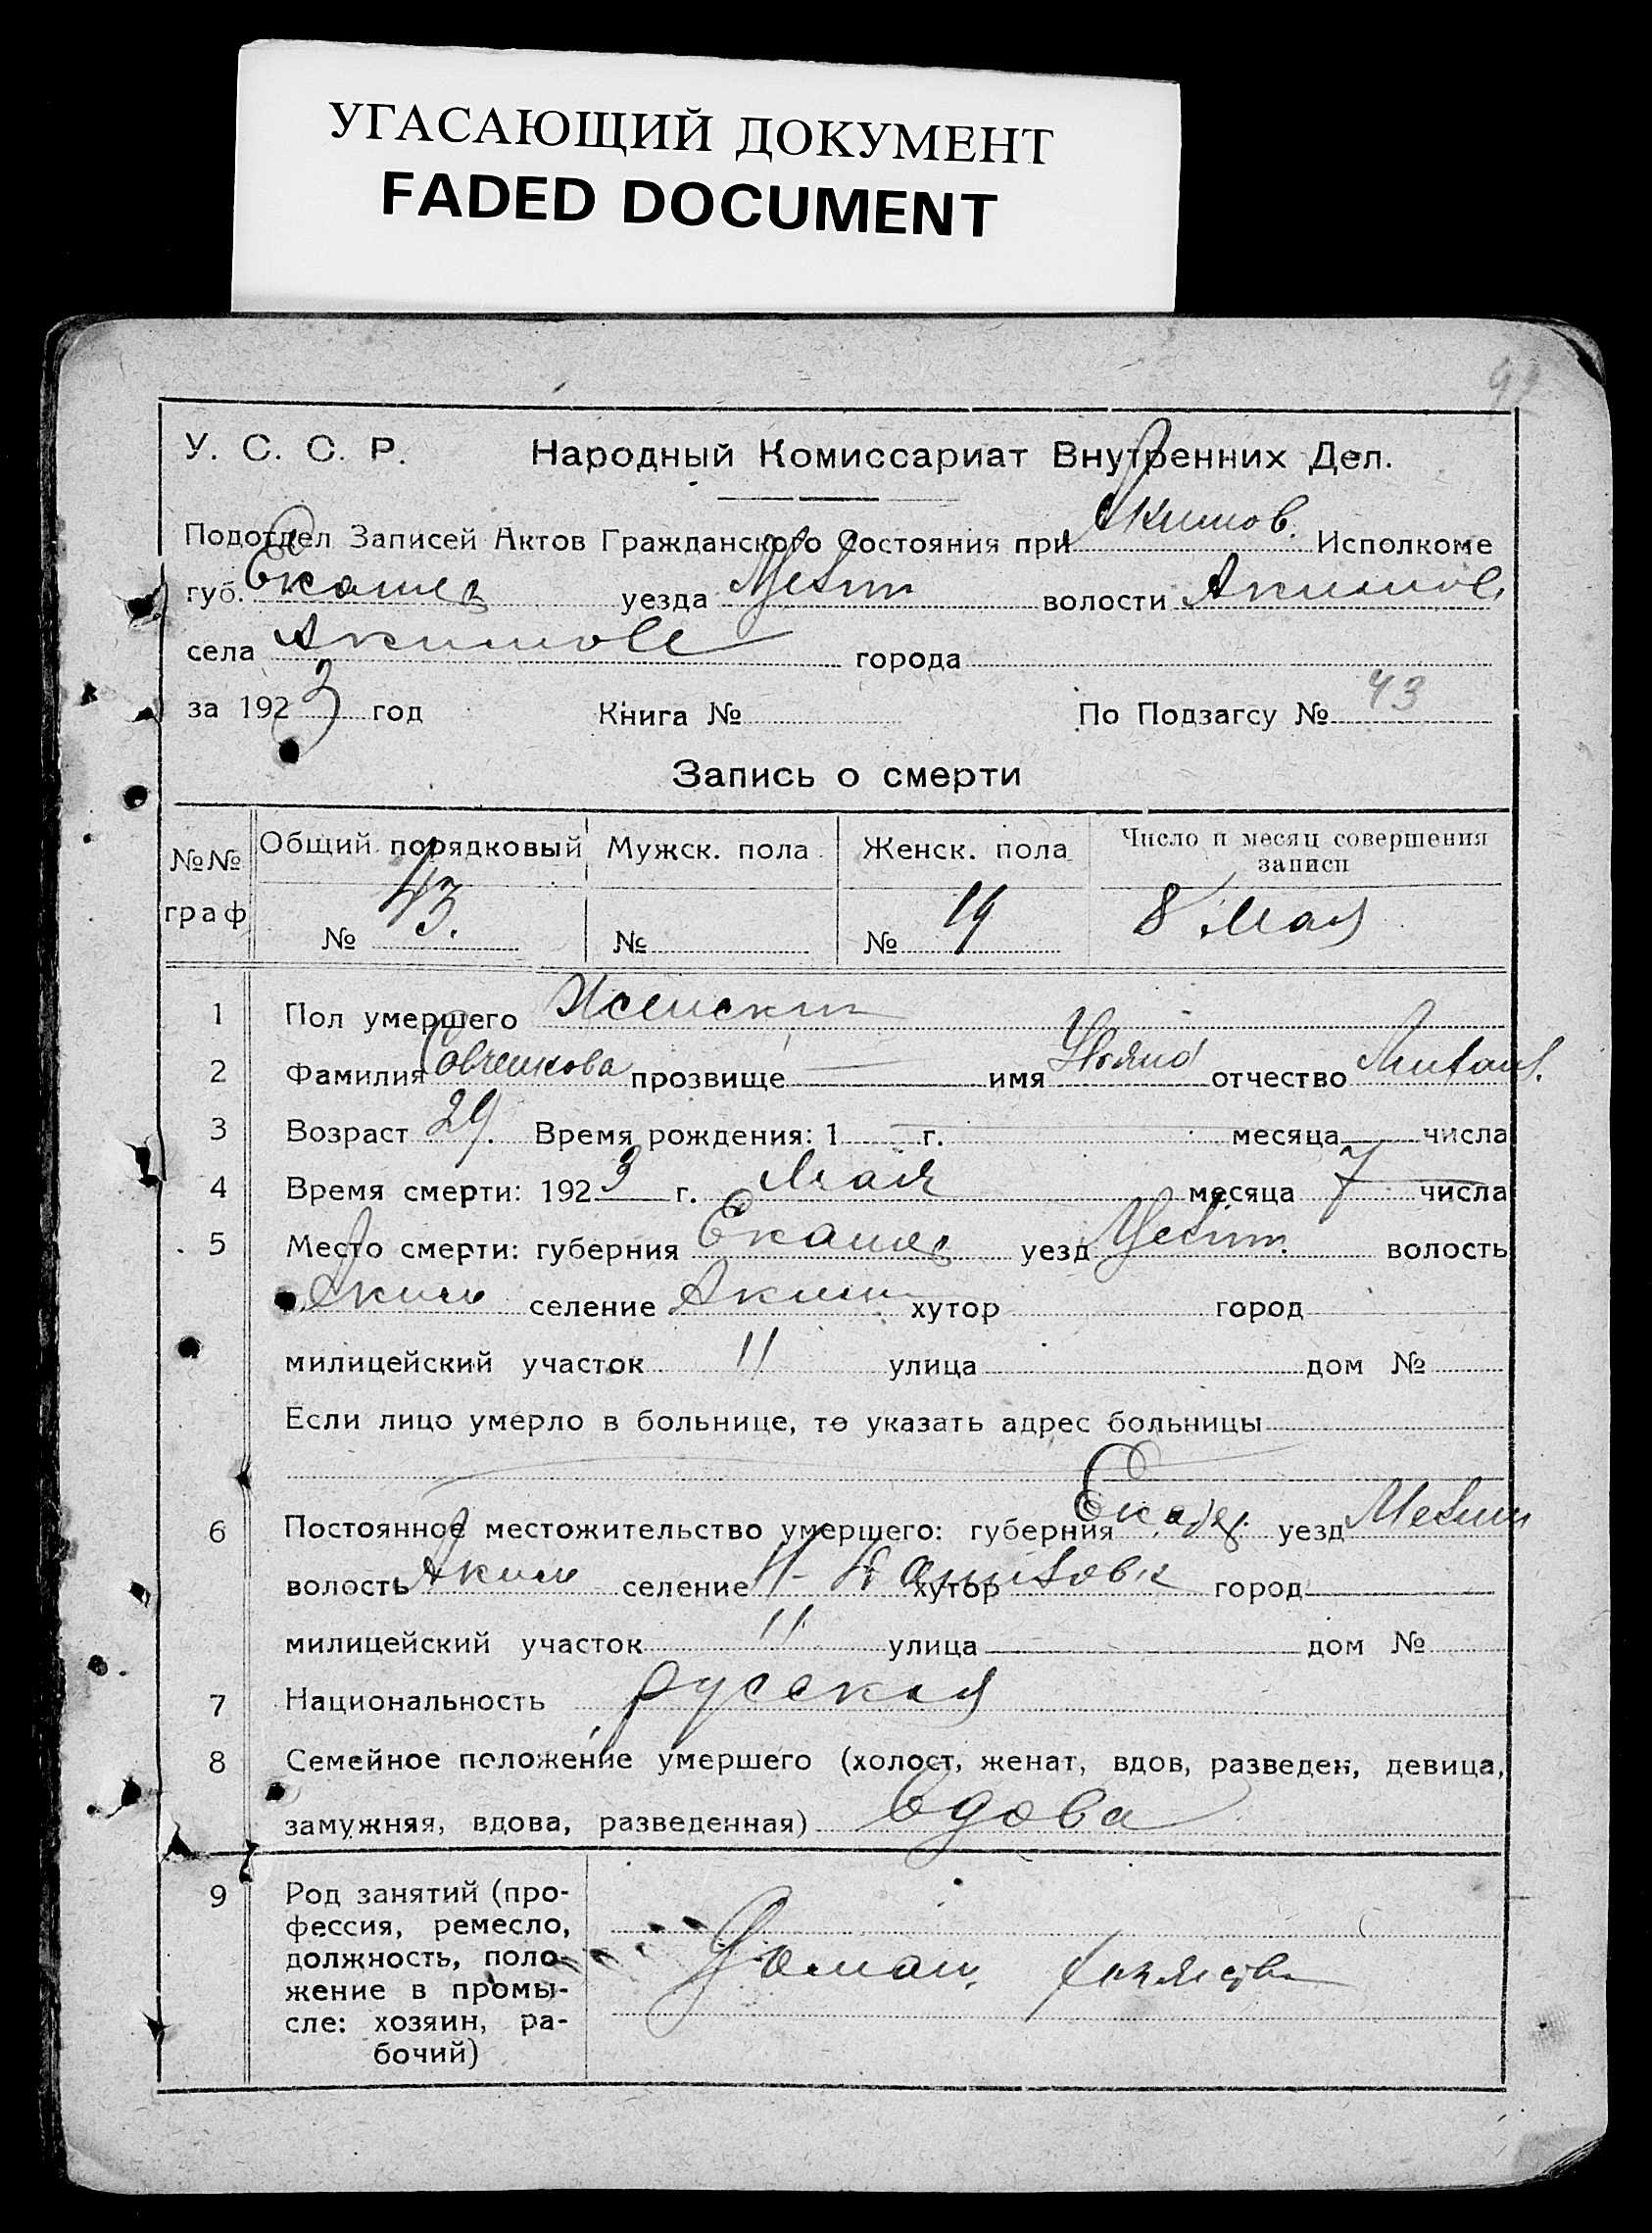 УГАСАЮЩИЙ ДОКУМЕНТ
FADED DOCUMENT
У. С. С. Р. Народный Комиссариат Внутренних Дел.
Подотдел Записей Актов Гражданского Состояния при Акимов. Исполкоме
губ. уезда Мелит волости Акимов.
села города
за 1923 год Книга № По Подзагсу № 43
Запись о смерти
№№ граф Общий порядковый Мужск. пола Женск. пола Число и месяц совершения записи
№ 43. № № 19 8 Мая
1 Пол умершего Женский
2 Фамилия прозвище имя отчество
3 Возраст 29. Время рождения: 1 г. месяца числа
4 Время смерти: 1923 г. Мая месяца 7 числа
5 Место смерти: губерния уезд Мелит. волость
Аким селение Аким хутор город
милицейский участок 11 улица дом №
Если лицо умерло в больнице, то указать адрес больницы
6 Постоянное местожительство умершего: губерния уезд Мелит
волость Аким селение хутор город
милицейский участок 11 улица дом №
7 Национальность русская
8 Семейное положение умершего (холост, женат, вдов, разведен, девица,
замужняя, вдова, разведенная) вдова
9 Род занятий (про-
фессия, ремесло,
должность, поло-
жение в промы-
сле: хозяин, ра-
бочий)
Домаш.